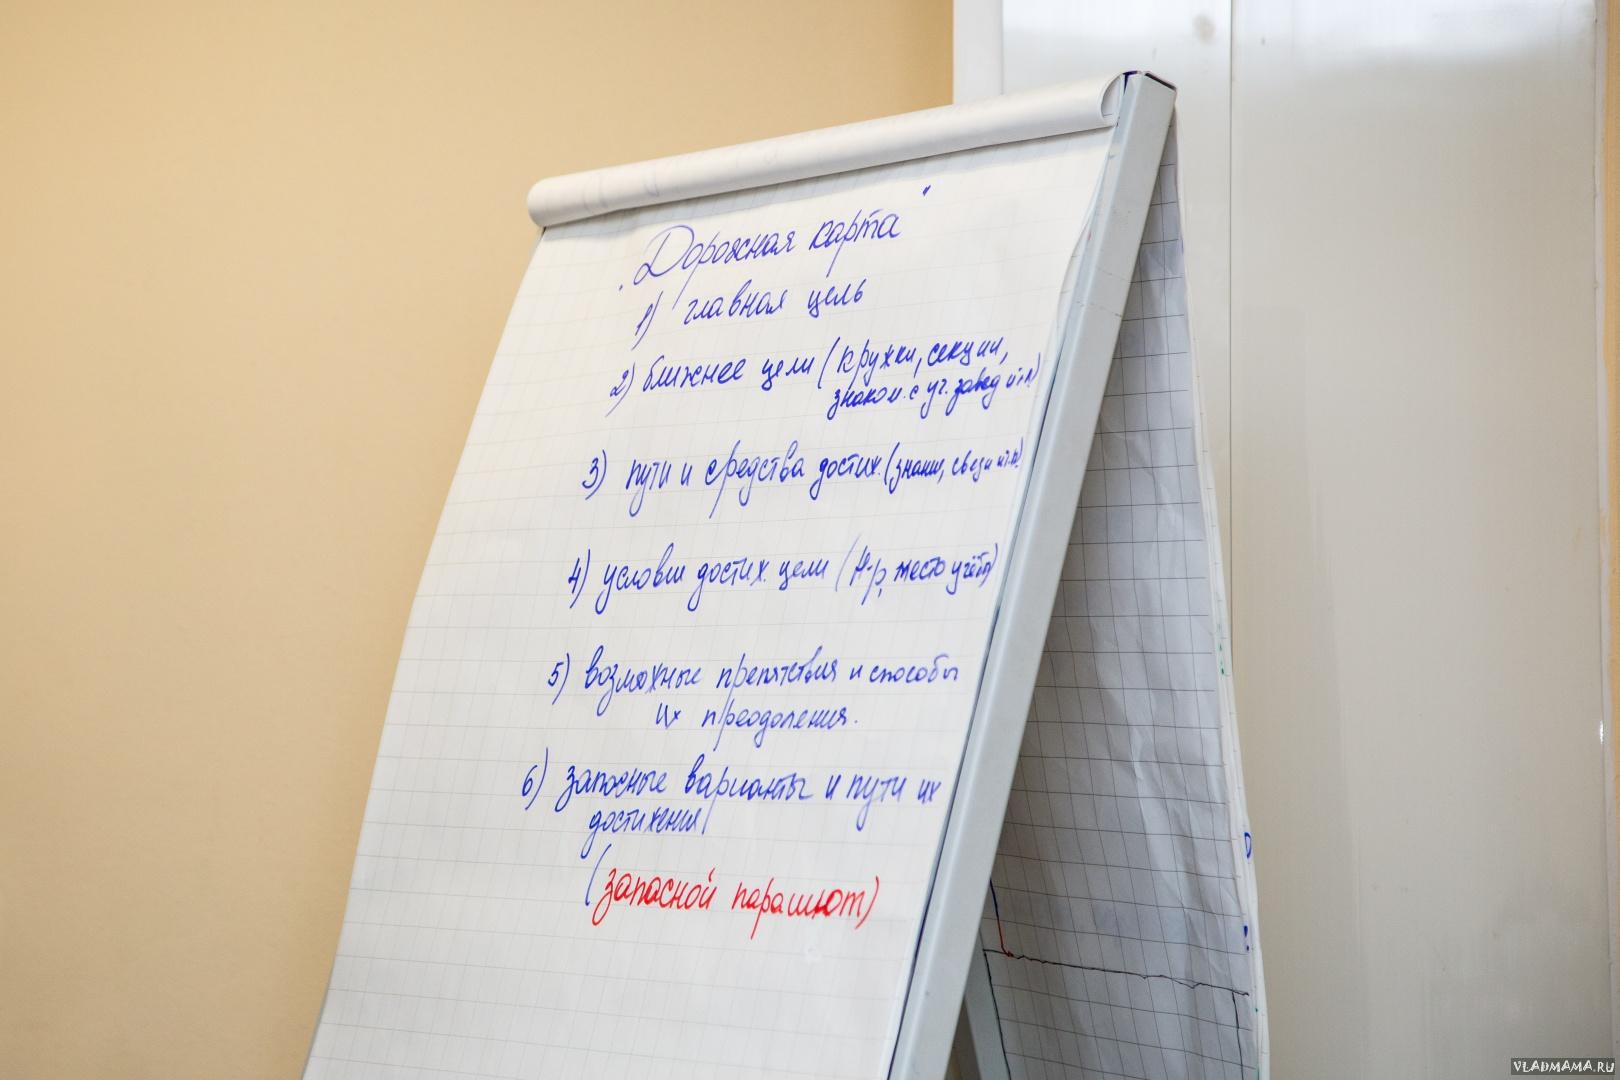 „Дорожная карта"
1) главная цель
2) ближнее цели (кружки, секции,
знаком. с уч. завед и т.п)
3) пути и средства достиж. (знания, связи и т.п)
4) условия достиж. цели (Н-р, место учёбы)
5) возможные препятствия и способы
их преодоления.
6) запасные варианты и пути их
достижения
(запасной парашют)
VLADMAMA.RU